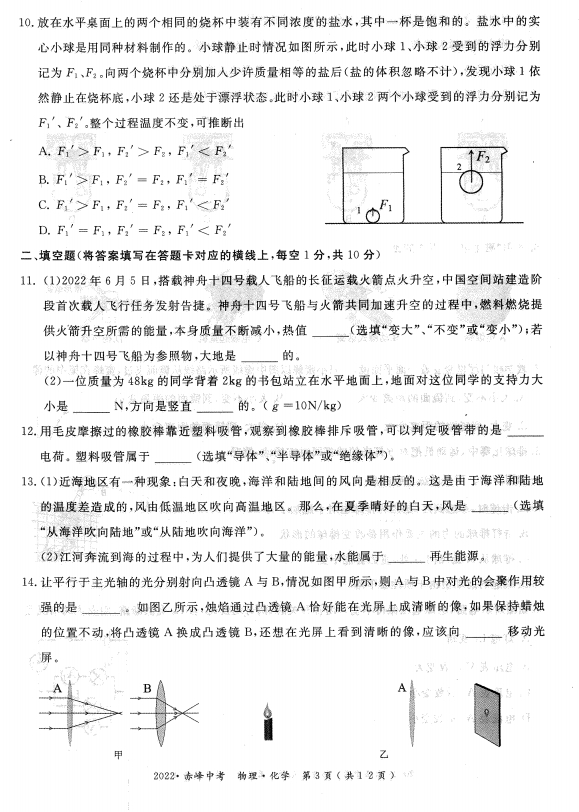 10. 放在水平桌面上的两个相同的烧杯中装有不同浓度的盐水,其中一杯是饱和的。盐水中的实
心小球是用同种材料制作的。小球静止时情况如图所示,此时小球1、小球2受到的浮力分别
记为F₁、F₂。向两个烧杯中分别加入少许质量相等的盐后(盐的体积忽略不计),发现小球1依
然静止在烧杯底,小球2还是处于漂浮状态。此时小球1、小球2两个小球受到的浮力分别记为
F₁′、F₂′。整个过程温度不变,可推断出
A. F₁′>F₁, F₂′>F₂, F₁′<F₂′
B. F₁′>F₁, F₂′=F₂, F₁′=F₂′
C. F₁′>F₁, F₂′=F₂, F₁′<F₂′
D. F₁′=F₁, F₂′=F₂, F₁′<F₂′
1 F₁
2 F₂
二、填空题(将答案填写在答题卡对应的横线上,每空1分,共10分)
11. (1)2022年6月5日,搭载神舟十四号载人飞船的长征运载火箭点火升空,中国空间站建造阶
段首次载人飞行任务发射告捷。神舟十四号飞船与火箭共同加速升空的过程中,燃料燃烧提
供火箭升空所需的能量,本身质量不断减小,热值______(选填“变大”、“不变”或“变小”);若
以神舟十四号飞船为参照物,大地是______的。
(2)一位质量为48kg的同学背着2kg的书包站立在水平地面上,地面对这位同学的支持力大
小是______N,方向是竖直______的。(g=10N/kg)
12. 用毛皮摩擦过的橡胶棒靠近塑料吸管,观察到橡胶棒排斥吸管,可以判定吸管带的是______
电荷。塑料吸管属于______(选填“导体”、“半导体”或“绝缘体”)。
13. (1)近海地区有一种现象:白天和夜晚,海洋和陆地间的风向是相反的。这是由于海洋和陆地
的温度差造成的,风由低温地区吹向高温地区。那么,在夏季晴好的白天,风是______(选填
“从海洋吹向陆地”或“从陆地吹向海洋”)。
(2)江河奔流到海的过程中,为人们提供了大量的能量,水能属于______再生能源。
14. 让平行于主光轴的光分别射向凸透镜A与B,情况如图甲所示,则A与B中对光的会聚作用较
强的是______。如图乙所示,烛焰通过凸透镜A恰好能在光屏上成清晰的像,如果保持蜡烛
的位置不动,将凸透镜A换成凸透镜B,还想在光屏上看到清晰的像,应该向______移动光
屏。
A B A
甲 乙
2022·赤峰中考 物理·化学 第3页(共12页)